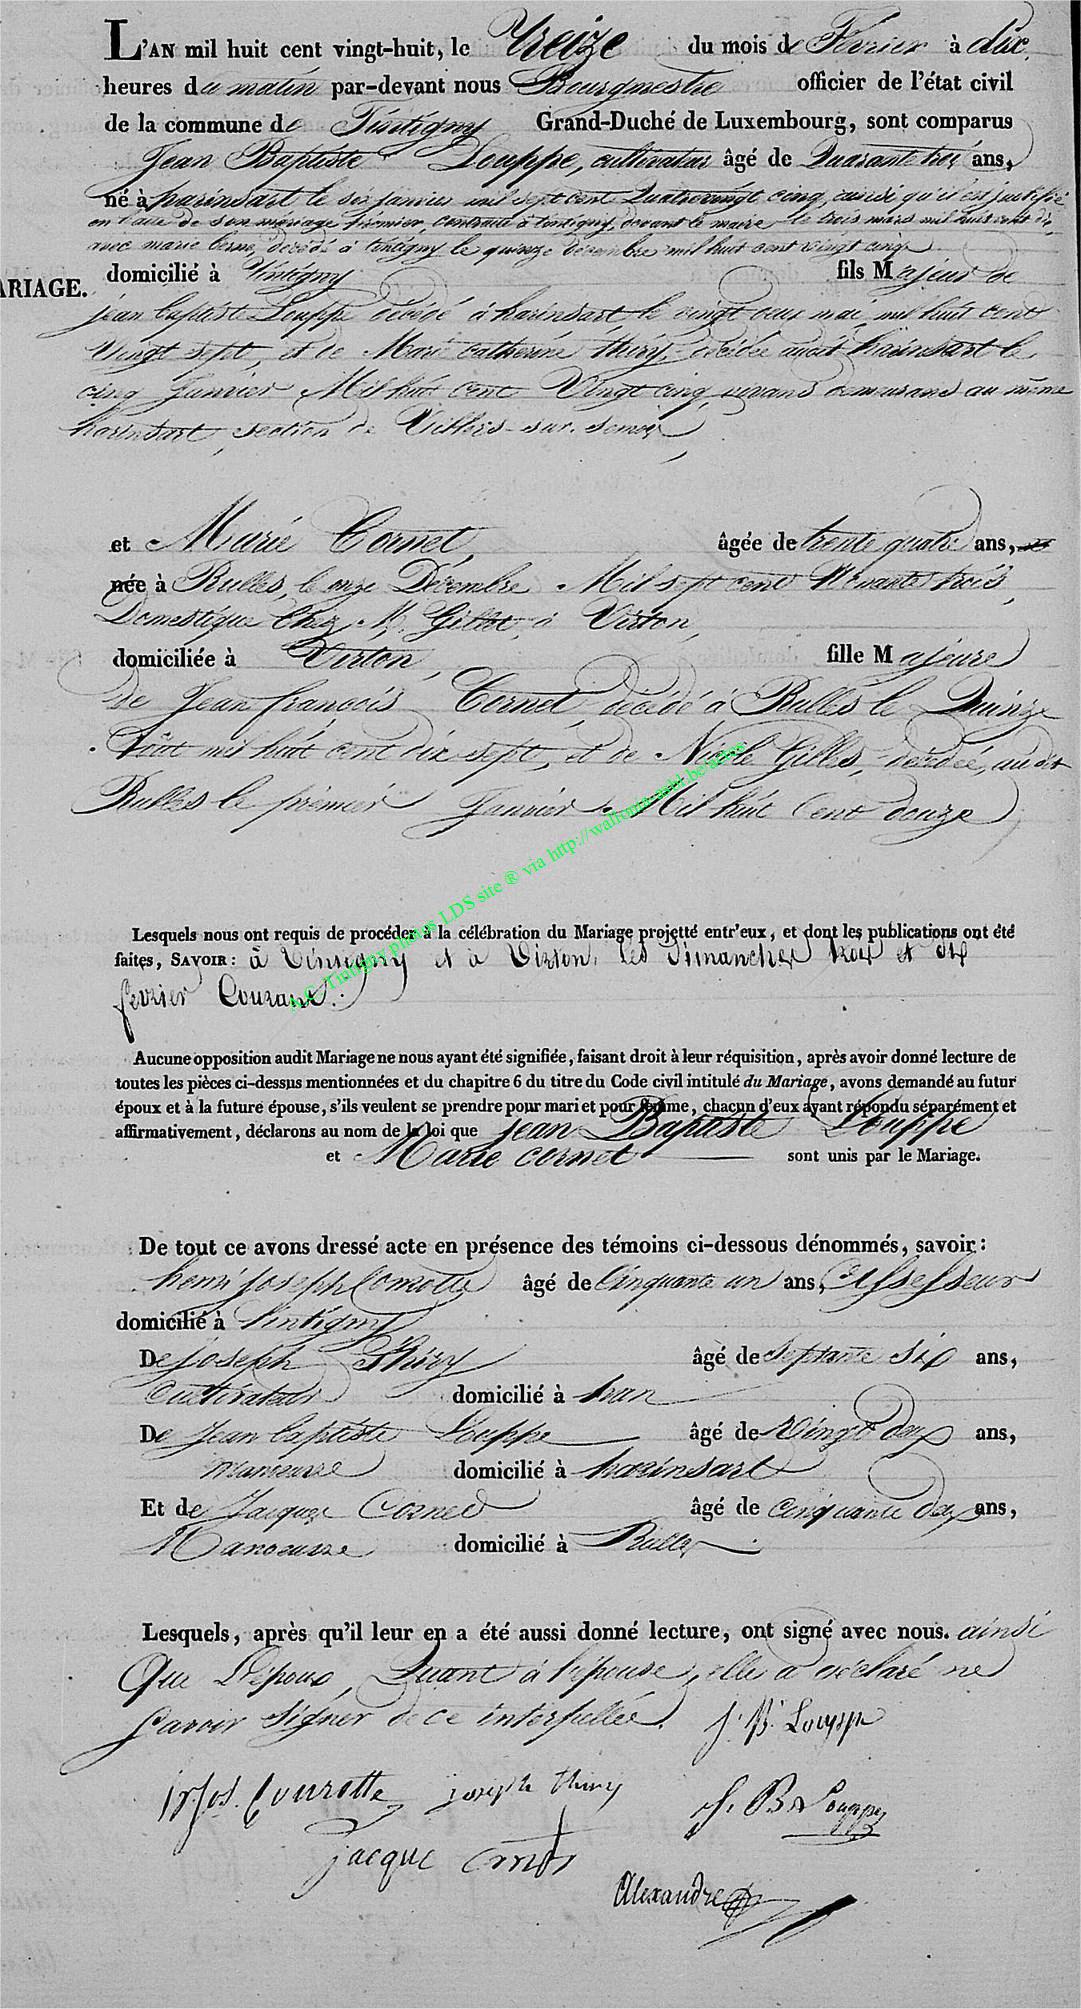 L'AN mil huit cent vingt-huit, le Treize du mois de Février à dix
heures du matin par-devant nous Bourgmestre officier de l'état civil
de la commune de Tintigny Grand-Duché de Luxembourg, sont comparus
Jean Baptiste Louppe, cultivateur âgé de Quarante trois ans,
né à harinsart le six janvier mil sept cent Quatrevingt cinq, ainsi qu'il est justifié
en l'acte de son mariage premier, contracté à tintigny, devant le maire le trois mars mil huit cent dix,
avec marie, décédé à tintigny le quinze décembre mil huit cent vingt cinq
MARIAGE. domicilié à Tintigny fils Majeur de
jean baptist Louppe décédé à harinsart, le vingt deux mai, mil huit cent
Vingt sept, et de Mari catherine thiry, décédée audit harinsart le
cinq Janvier Mil huit cent Vingt cinq, vivans demeurans au même
harinsart, section de Villers-sur-semoy
et Marie Cornet, âgée de trente quatre ans,
née à Rulles, le onze Décembre Mil sept cent Novante trois,
Domestique chez Mr Gillot, à Virton,
domiciliée à Virton, fille Majeure
de Jean françois Cornet, décédé à Rulles le Quinze
Août mil huit cent dix sept, et de Nicole Gilles, décédée, audit
Rulles le premier Janvier Mil huit Cent douze
A.C. Tintigny photos LDS site ® via http://wallonia-asbl.be/actes
Lesquels nous ont requis de procéder à la célébration du Mariage projetté entr'eux, et dont les publications ont été
faites, SAVOIR : à Tintigny et à Virton, les Dimanches trois et dix
fevrier Courant.
Aucune opposition audit Mariage ne nous ayant été signifiée, faisant droit à leur réquisition, après avoir donné lecture de
toutes les pièces ci-dessus mentionnées et du chapitre 6 du titre du Code civil intitulé du Mariage, avons demandé au futur
époux et à la future épouse, s'ils veulent se prendre pour mari et pour femme, chacun d'eux ayant répondu séparément et
affirmativement, déclarons au nom de la loi que jean Baptiste Louppe
et Marie cornet sont unis par le Mariage.
De tout ce avons dressé acte en présence des témoins ci-dessous dénommés, savoir :
henri joseph âgé de Cinquante un ans, Assesseur
domicilié à tintigny
De joseph Thiry âgé de septante six ans,
Cultivateur domicilié à han
De Jean baptiste Louppe âgé de Vingt deux ans,
manoeuvre domicilié à harinsart
Et de Jacques Cornet âgé de cinquante deux ans,
Manoeuvre domicilié à Rulles
Lesquels, après qu'il leur en a été aussi donné lecture, ont signé avec nous. ainsi
Que L'époux, Quant à l'épouse, elle a déclaré ne
savoir signer de ce interpellée.
J. B. Louppe
joseph thiry
J. B Louppe
jacque
Alexandre